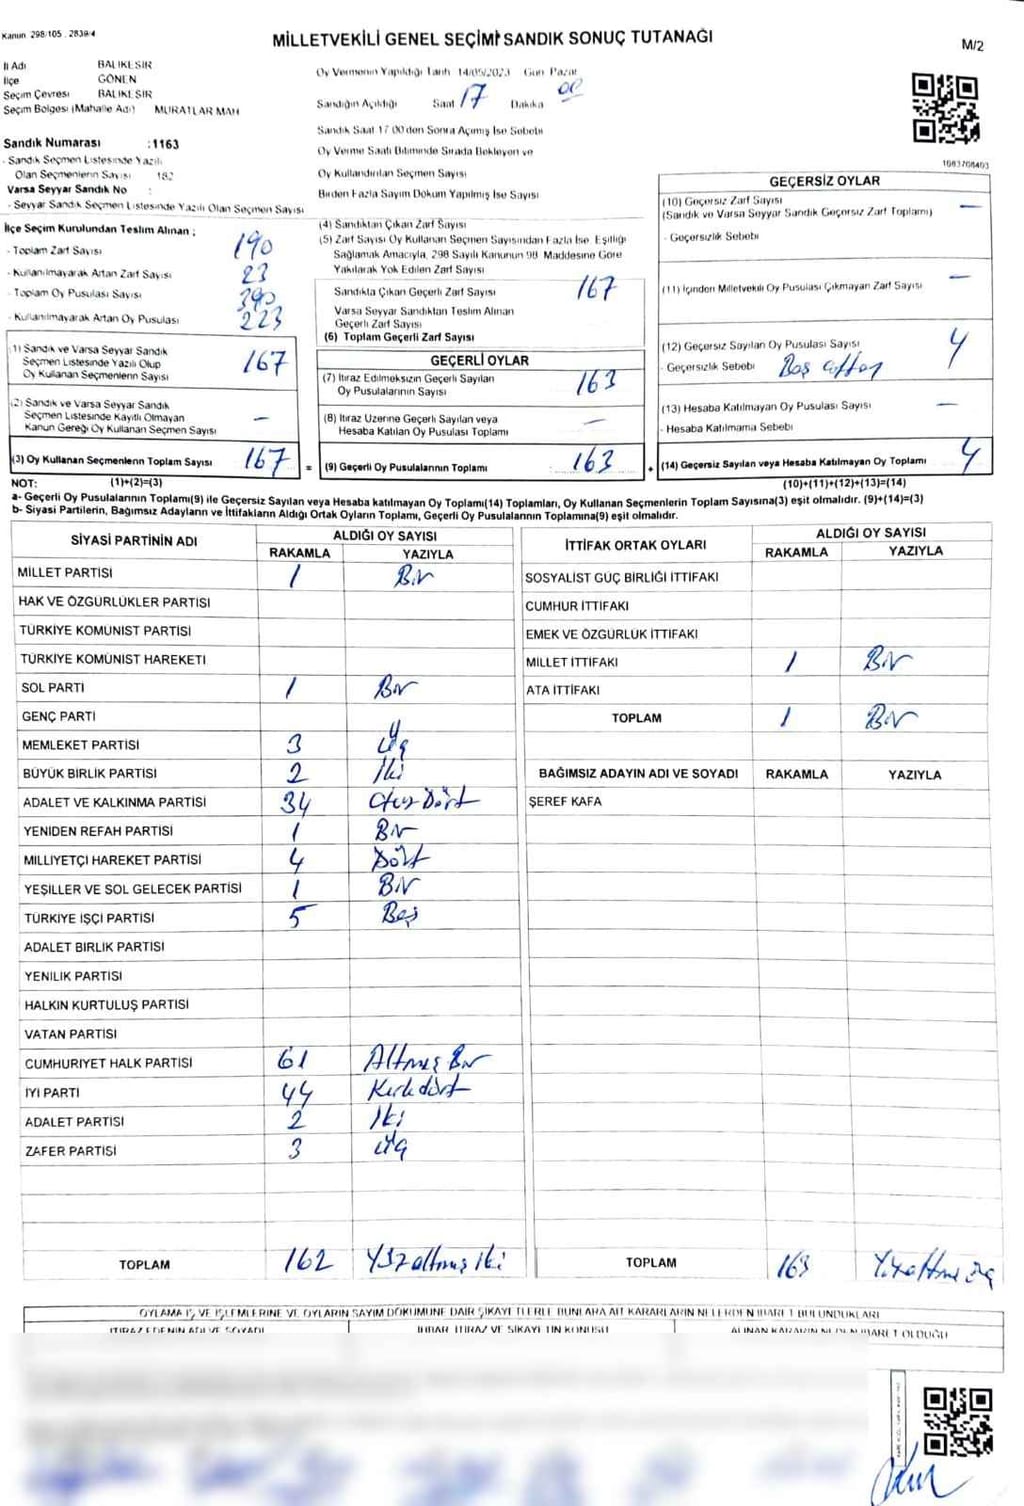 Kanun 298/105 . 2839/4
MİLLETVEKİLİ GENEL SEÇİMİ SANDIK SONUÇ TUTANAĞI
M/2
İl Adı BALIKESİR
İlçe GÖNEN
Seçim Çevresi BALIKESİR
Seçim Bölgesi (Mahalle Adı) MURATLAR MAH
Sandık Numarası :1163
- Sandık Seçmen Listesinde Yazılı
Olan Seçmenlerin Sayısı 182
Varsa Seyyar Sandık No :
- Seyyar Sandık Seçmen Listesinde Yazılı Olan Seçmen Sayısı
Oy Vermenin Yapıldığı Tarih 14/05/2023 Gün Pazar
Sandığın Açıldığı Saat 17 Dakika 00
Sandık Saat 17 00'den Sonra Açılmış İse Sebebi
Oy Verme Saati Bitiminde Sırada Bekleyen ve
Oy Kullandırılan Seçmen Sayısı
Birden Fazla Sayım Döküm Yapılmış İse Sayısı
1083708403
İlçe Seçim Kurulundan Teslim Alınan ;
- Toplam Zarf Sayısı 190
- Kullanılmayarak Artan Zarf Sayısı 23
- Toplam Oy Pusulası Sayısı 390
- Kullanılmayarak Artan Oy Pusulası 223
(1) Sandık ve Varsa Seyyar Sandık
Seçmen Listesinde Yazılı Olup
Oy Kullanan Seçmenlerin Sayısı 167
(2) Sandık ve Varsa Seyyar Sandık
Seçmen Listesinde Kayıtlı Olmayan
Kanun Gereği Oy Kullanan Seçmen Sayısı –
(3) Oy Kullanan Seçmenlerin Toplam Sayısı 167 =
(4) Sandıktan Çıkan Zarf Sayısı
(5) Zarf Sayısı Oy Kullanan Seçmen Sayısından Fazla İse, Eşitliği
Sağlamak Amacıyla, 298 Sayılı Kanunun 98. Maddesine Göre
Yakılarak Yok Edilen Zarf Sayısı
Sandıkta Çıkan Geçerli Zarf Sayısı 167
Varsa Seyyar Sandıktan Teslim Alınan
Geçerli Zarf Sayısı
(6) Toplam Geçerli Zarf Sayısı
GEÇERLİ OYLAR
(7) İtiraz Edilmeksizin Geçerli Sayılan
Oy Pusulalarının Sayısı 163
(8) İtiraz Üzerine Geçerli Sayılan veya
Hesaba Katılan Oy Pusulası Toplamı –
(9) Geçerli Oy Pusulalarının Toplamı 163 +
GEÇERSİZ OYLAR
(10) Geçersiz Zarf Sayısı –
(Sandık ve Varsa Seyyar Sandık Geçersiz Zarf Toplamı)
- Geçersizlik Sebebi
(11) İçinden Milletvekili Oy Pusulası Çıkmayan Zarf Sayısı –
(12) Geçersiz Sayılan Oy Pusulası Sayısı 4
- Geçersizlik Sebebi Boş
(13) Hesaba Katılmayan Oy Pusulası Sayısı –
- Hesaba Katılmama Sebebi
(14) Geçersiz Sayılan veya Hesaba Katılmayan Oy Toplamı 4
NOT: (1)+(2)=(3) (10)+(11)+(12)+(13)=(14)
a- Geçerli Oy Pusulalarının Toplamı(9) ile Geçersiz Sayılan veya Hesaba katılmayan Oy Toplamı(14) Toplamları, Oy Kullanan Seçmenlerin Toplam Sayısına(3) eşit olmalıdır. (9)+(14)=(3)
b- Siyasi Partilerin, Bağımsız Adayların ve İttifakların Aldığı Ortak Oyların Toplamı, Geçerli Oy Pusulalarının Toplamına(9) eşit olmalıdır.
SİYASİ PARTİNİN ADI ALDIĞI OY SAYISI
RAKAMLA YAZIYLA
MİLLET PARTİSİ 1 Bir
HAK VE ÖZGÜRLÜKLER PARTİSİ
TÜRKİYE KOMÜNİST PARTİSİ
TÜRKİYE KOMÜNİST HAREKETİ
SOL PARTİ 1 Bir
GENÇ PARTİ
MEMLEKET PARTİSİ 3 Üç
BÜYÜK BİRLİK PARTİSİ 2 İki
ADALET VE KALKINMA PARTİSİ 34 Otuz Dört
YENİDEN REFAH PARTİSİ 1 Bir
MİLLİYETÇİ HAREKET PARTİSİ 4 Dört
YEŞİLLER VE SOL GELECEK PARTİSİ 1 Bir
TÜRKİYE İŞÇİ PARTİSİ 5 Beş
ADALET BİRLİK PARTİSİ
YENİLİK PARTİSİ
HALKIN KURTULUŞ PARTİSİ
VATAN PARTİSİ
CUMHURİYET HALK PARTİSİ 61 Altmış Bir
İYİ PARTİ 44 Kırkdört
ADALET PARTİSİ 2 İki
ZAFER PARTİSİ 3 Üç
TOPLAM 162 Yüzaltmış iki
İTTİFAK ORTAK OYLARI ALDIĞI OY SAYISI
RAKAMLA YAZIYLA
SOSYALİST GÜÇ BİRLİĞİ İTTİFAKI
CUMHUR İTTİFAKI
EMEK VE ÖZGÜRLÜK İTTİFAKI
MİLLET İTTİFAKI 1 Bir
ATA İTTİFAKI
TOPLAM 1 Bir
BAĞIMSIZ ADAYIN ADI VE SOYADI RAKAMLA YAZIYLA
ŞEREF KAFA
TOPLAM 163 Yüzaltmış üç
OYLAMA İŞ VE İŞLEMLERİNE VE OYLARIN SAYIM DÖKÜMÜNE DAİR ŞİKAYETLERLE BUNLARA AİT KARARLARIN NELERDEN İBARET BULUNDUKLARI
İTİRAZ EDENİN ADI VE SOYADI İHBAR, İTİRAZ VE ŞİKAYETİN KONUSU ALINAN KARARIN NEDEN İBARET OLDUĞU